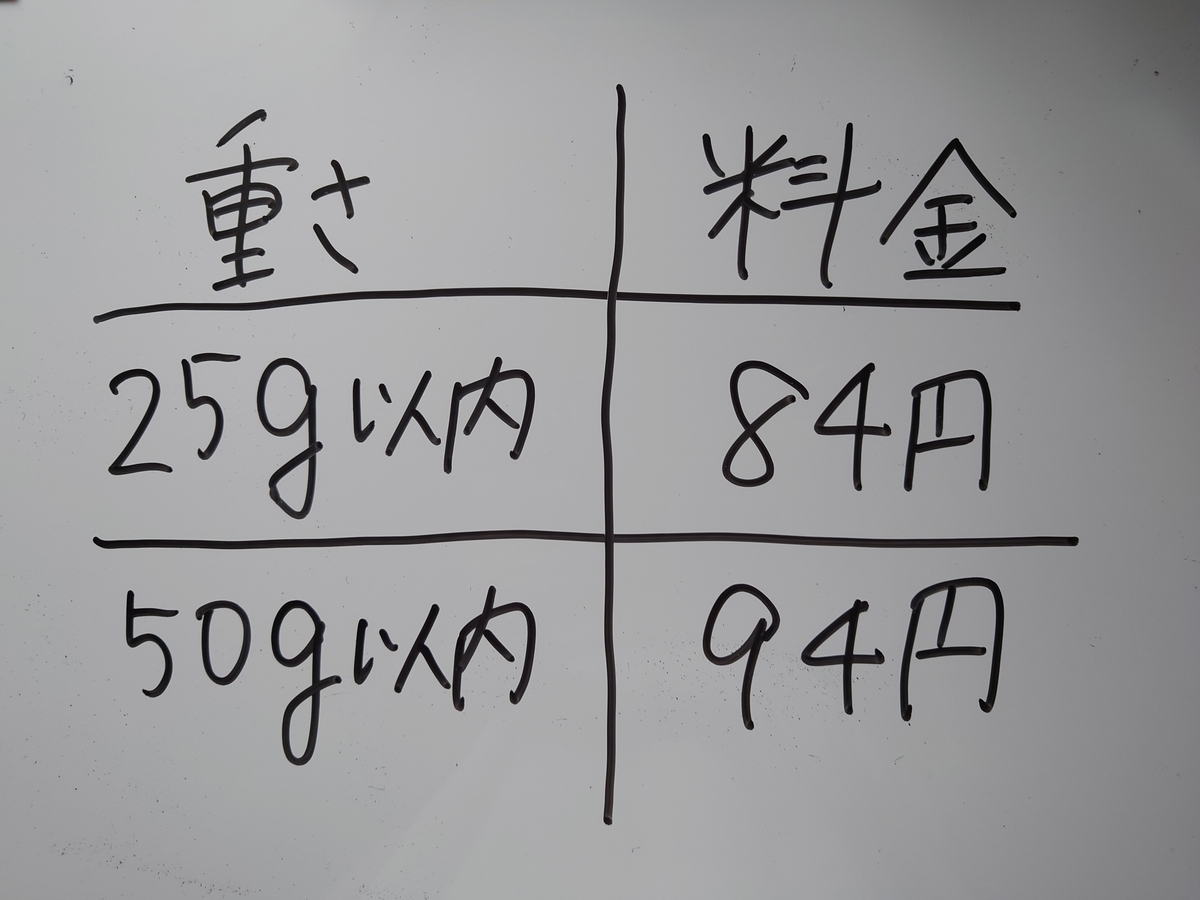 重さ 料金
25g以内 84円
50g以内 94円